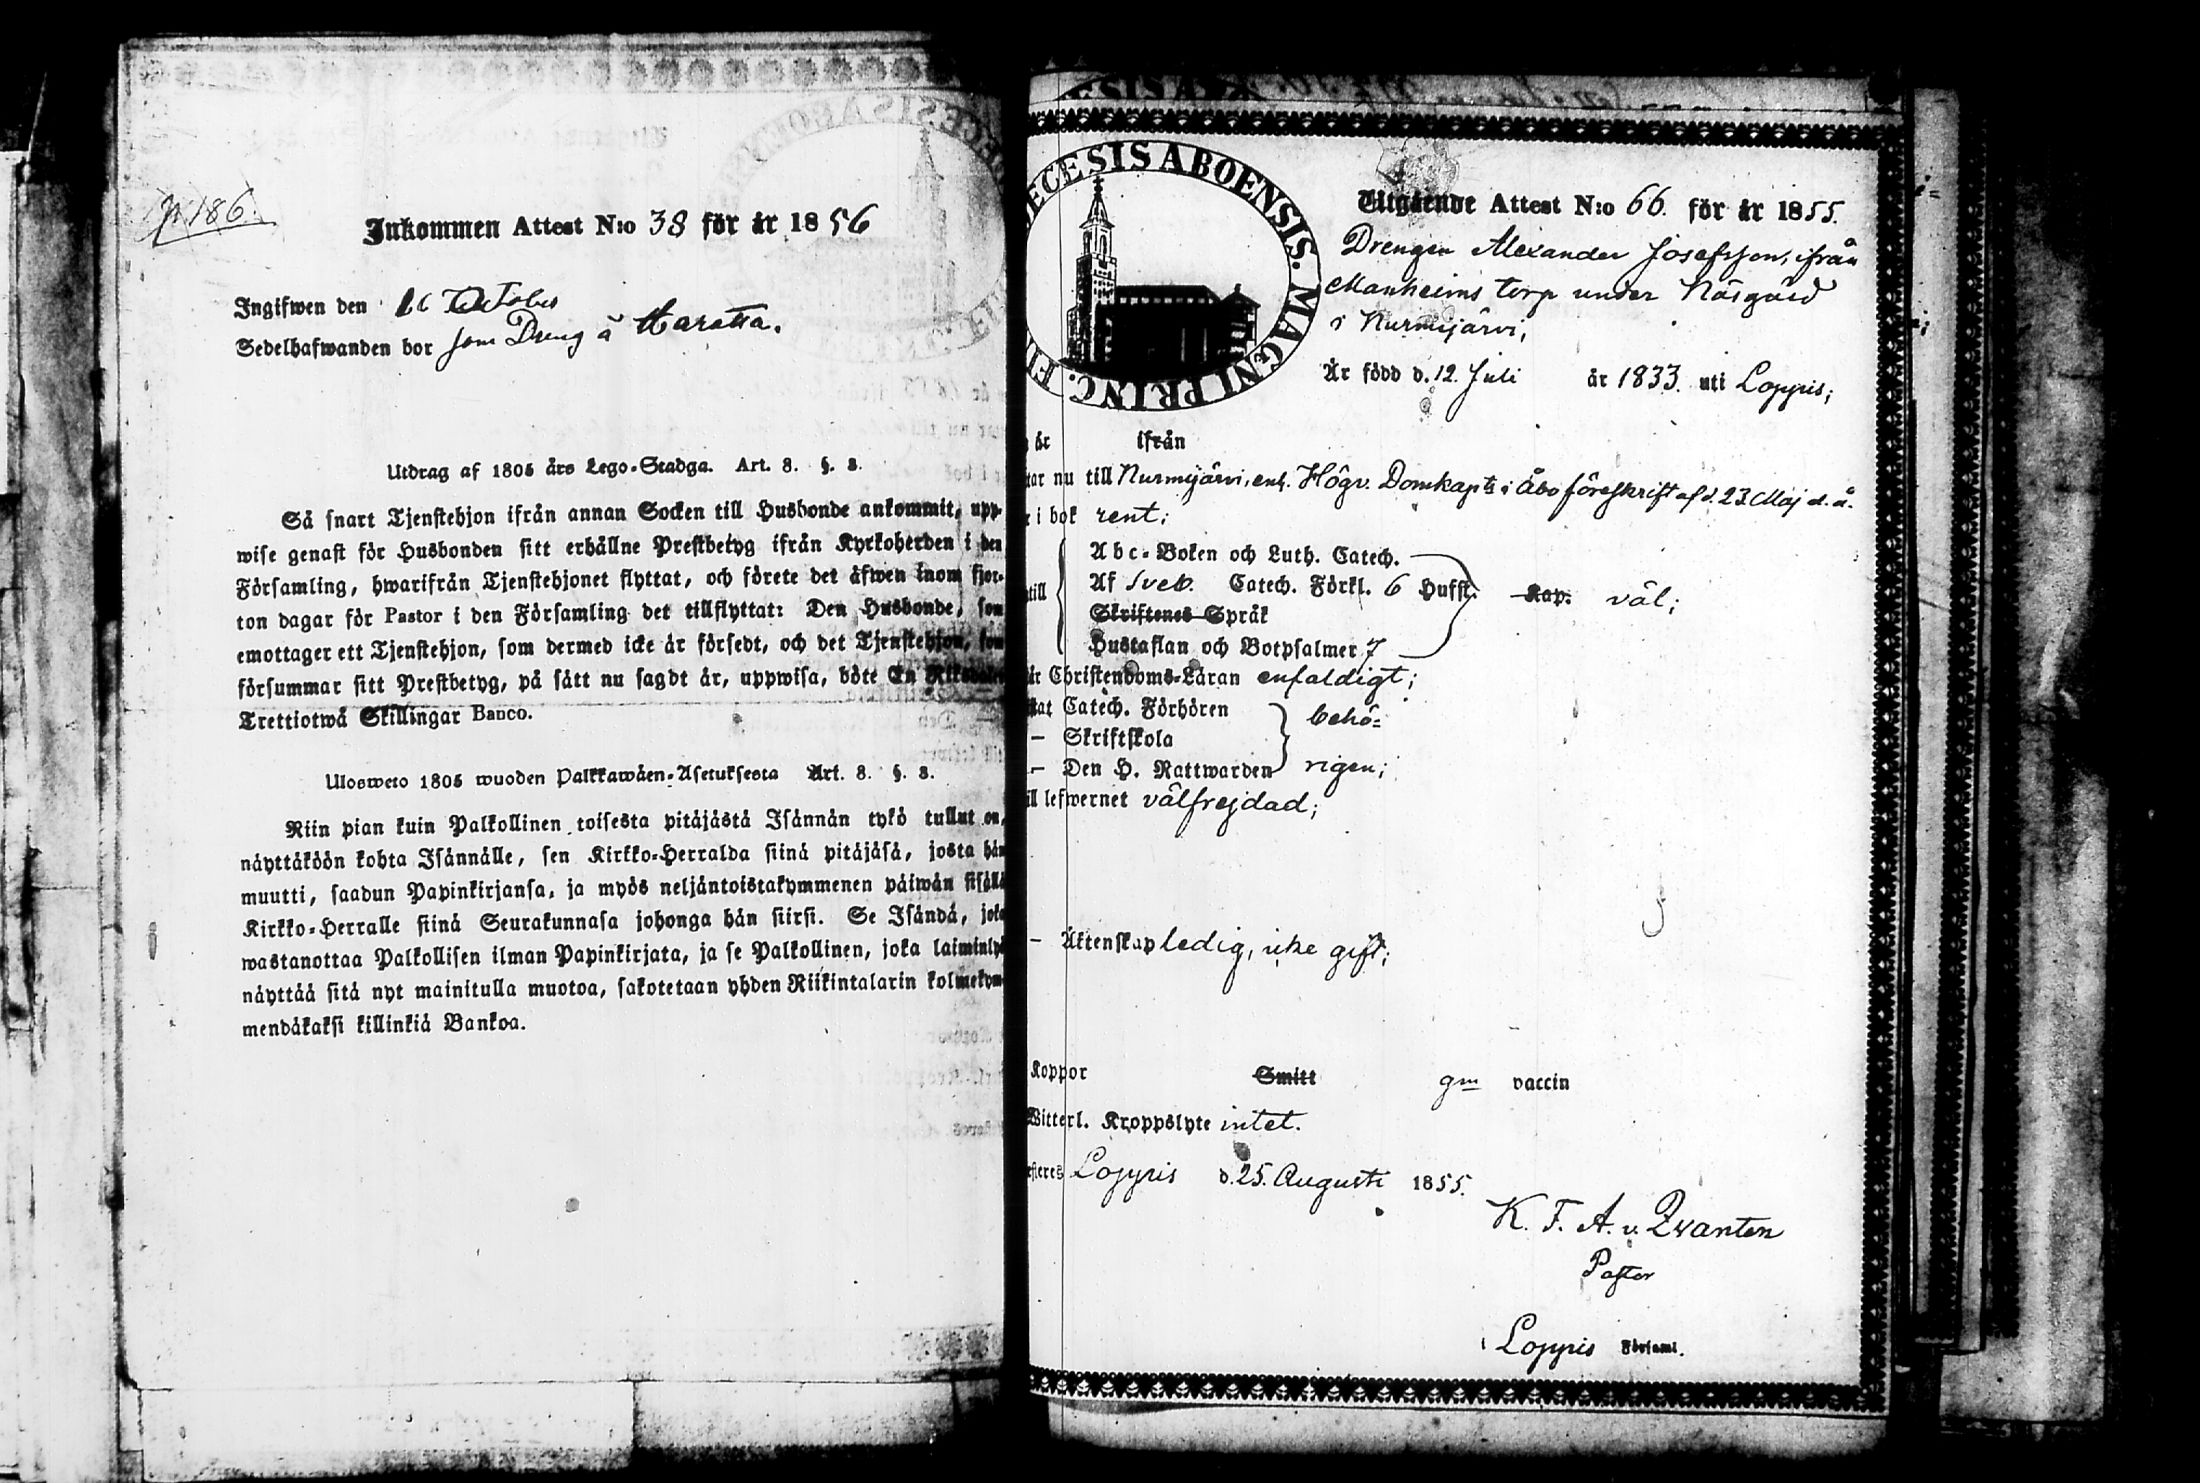 p. 186.
Inkommen Attest N:o 38 för år 1856
Ingifwen den 16 October
Sedelhafwanden bor som Dreng å Haratta.
Utdrag af 1805 års Lego-Stadga. Art. 8. §. 8.
Så snart Tjenstehjon ifrån annan Socken till Husbonde ankommit, upp-
wise genast för Husbonden sitt erhållne Prestbetyg ifrån Kyrkoherden i den
Församling, hwarifrån Tjenstehjonet flyttat, och förete det äfwen inom fjor-
ton dagar för Pastor i den Församling det tillflyttat: Den Husbonde, som
emottager ett Tjenstehjon, som dermed icke är försedt, och det Tjenstehjon, som
försummar sitt Prestbetyg, på sätt nu sagdt är, uppwisa, böte En Riksdaler
Trettiotwå Skillingar Banco.
Ulosweto 1805 wuoden Palkkawäen-Asetuksesta Art. 8. §. 8.
Niin pian kuin Palkollinen toisesta pitäjästä Isännän tykö tullut on,
näyttäköön kohta Isännälle, sen Kirkko-Herralda siinä pitäjäsä, josta hän
muutti, saadun Papinkirjansa, ja myös neljäntoistakymmenen päiwän sisällä
Kirkko-Herralle siinä Seurakunnasa johonga hän siirsi. Se Isändä, joka
wastanottaa Palkollisen ilman Papinkirjata, ja se Palkollinen, joka laiminlyö
näyttää sitä nyt mainitulla muotoa, sakotetaan yhden Riikintalarin kolmekym-
mendäkaksi killinkiä Bankoa.
ECESIS ABOENSIS. MAGNI PRINC. FI
Utgående Attest N:o 66. för år 1855.
Drengen Alexander Josefsson, ifrån
Manheims torp under Näsgård
i Nurmijärvi,
Är född d. 12. Juli år 1833. uti Loppis;
år ifrån
tar nu till Nurmijärvi, enl. Högv. Domkaptls i Åbo föreskrift af d. 23 Maj d. å.
r i bok rent;
till
Abc-Boken och Luth. Catech.
Af Sveb. Catech. Förkl. 6 Hufst. Kap. väl;
Skriftenes Språk
Hustaflan och Botpsalmer 7
är Christendoms-Läran enfaldigt;
tat Catech. Förhören behö-
— Skriftskola
— Den H. Nattwarden rigen;
ill lefwernet välfrejdad;
— Äktenskap ledig, icke gift;
Koppor Smitt gm vaccin
Witterl. Kroppslyte intet.
esteres Loppis d. 25. Augusti 1855.
K. F. A. v. Zvanten
Pastor
i Loppis Församl.